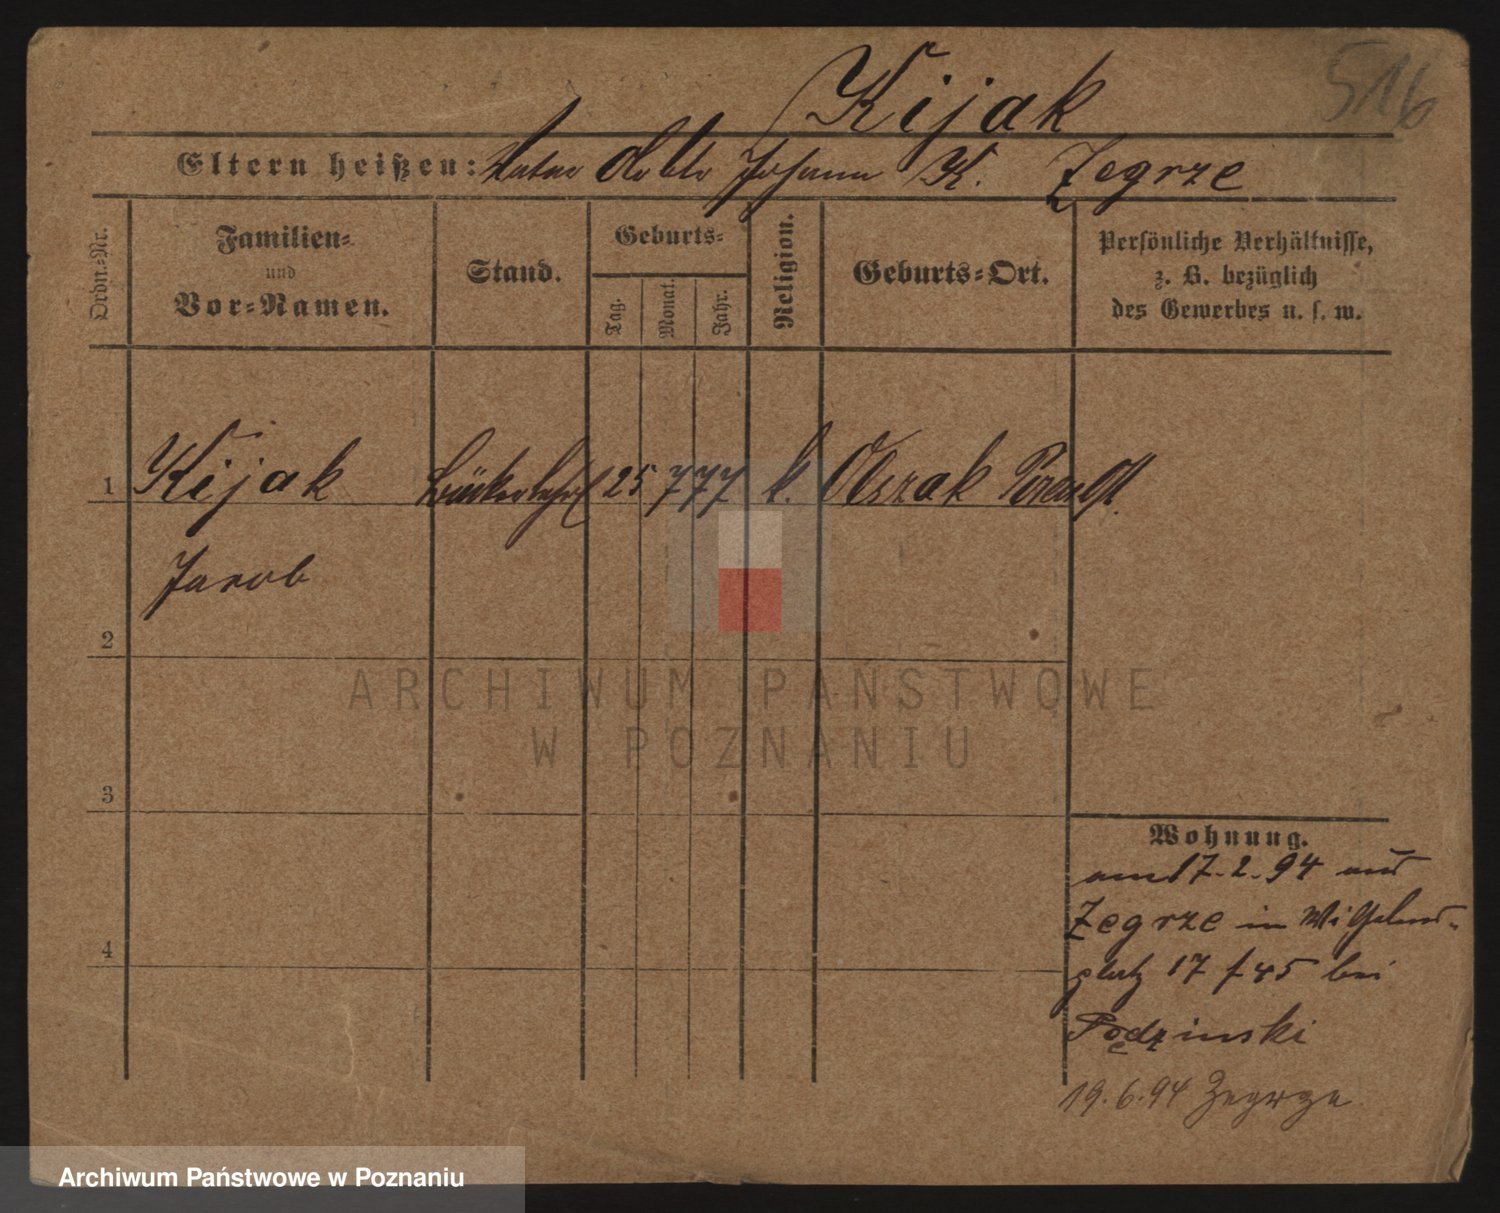 516
Kijak
Eltern heißen: Vater Johann K. Zegrze
Ordn.-Nr.
Familien-
und
Vor-Namen.
Stand.
Geburts-
Tag.
Monat.
Jahr.
Religion.
Geburts-Ort.
Persönliche Verhältnisse,
z. B. bezüglich
des Gewerbes u. s. w.
1 Kijak 25 7 77 k. Olszak Posen Ost.
Jacob
2
3
4
ARCHIWUM PAŃSTWOWE
W POZNANIU
Wohnung.
am 17.2.94 aus
Zegrze in Wilhelms-
platz 17 bei
19.6.94 Zegrze
Archiwum Państwowe w Poznaniu